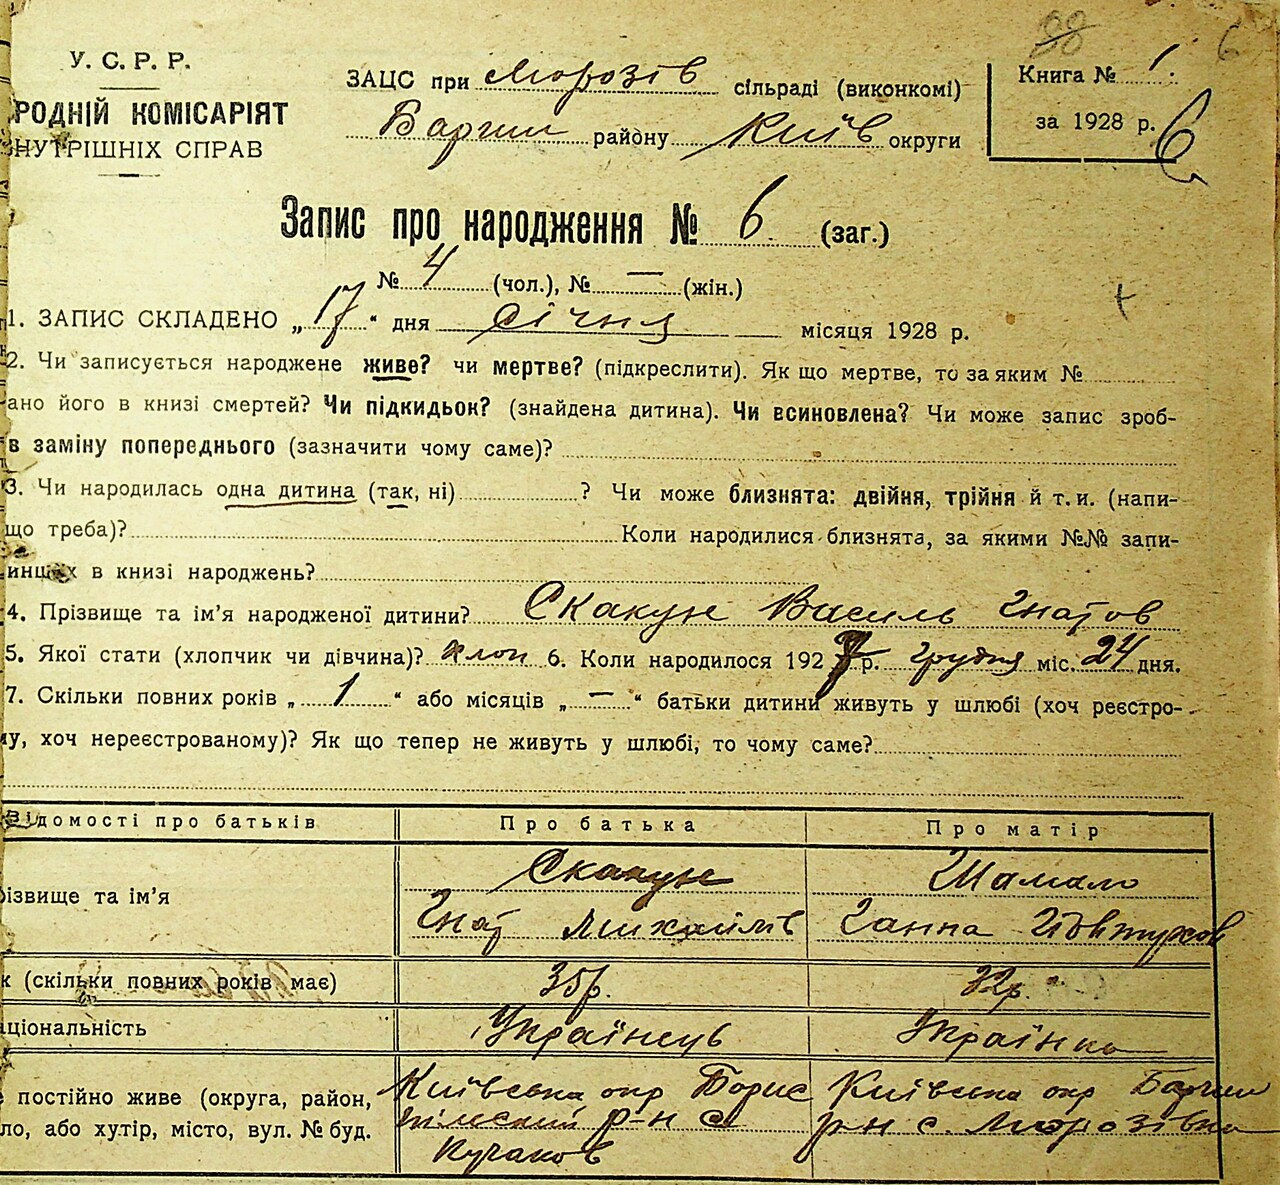 У. С. Р. Р.
РОДНІЙ КОМІСАРІЯТ
ВНУТРІШНІХ СПРАВ
ЗАЦС при Морозів сільраді (виконкомі)
Бариш району Київ округи
88 6
Книга № 1.
за 1928 р.
6
Запис про народження № 6 (заг.)
№ 4 (чол.), № — (жін.)
1. ЗАПИС СКЛАДЕНО „17“ дня січня місяця 1928 р.
2. Чи записується народжене живе? чи мертве? (підкреслити). Як що мертве, то за яким №
ано його в книзі смертей? Чи підкидьок? (знайдена дитина). Чи всиновлена? Чи може запис зроб-
в заміну попереднього (зазначити чому саме)?
3. Чи народилась одна дитина (так, ні) ? Чи може близнята: двійня, трійня й т. и. (напи-
що треба)? Коли народилися близнята, за якими №№ запи-
инших в книзі народжень?
4. Прізвище та ім’я народженої дитини? Скакун Василь Гнатов
5. Якої статі (хлопчик чи дівчина)? хлоп 6. Коли народилося 1927 р. грудня міс. 24 дня.
7. Скільки повних років „1“ або місяців „—“ батьки дитини живуть у шлюбі (хоч реєстро-
му, хоч нереєстрованому)? Як що тепер не живуть у шлюбі, то чому саме?
Відомості про батьків Про батька Про матір
різвище та ім’я Скакун Шамало
Гнат Михайлів Ганна
к (скільки повних років має) 35р. 32р.
аціональність Українець Українка
постійно живе (округа, район, Київська окр Борис Київська окр Бариш
ло, або хутір, місто, вул. № буд. пільский р-н с р-н с. Морозівка
Кучаков